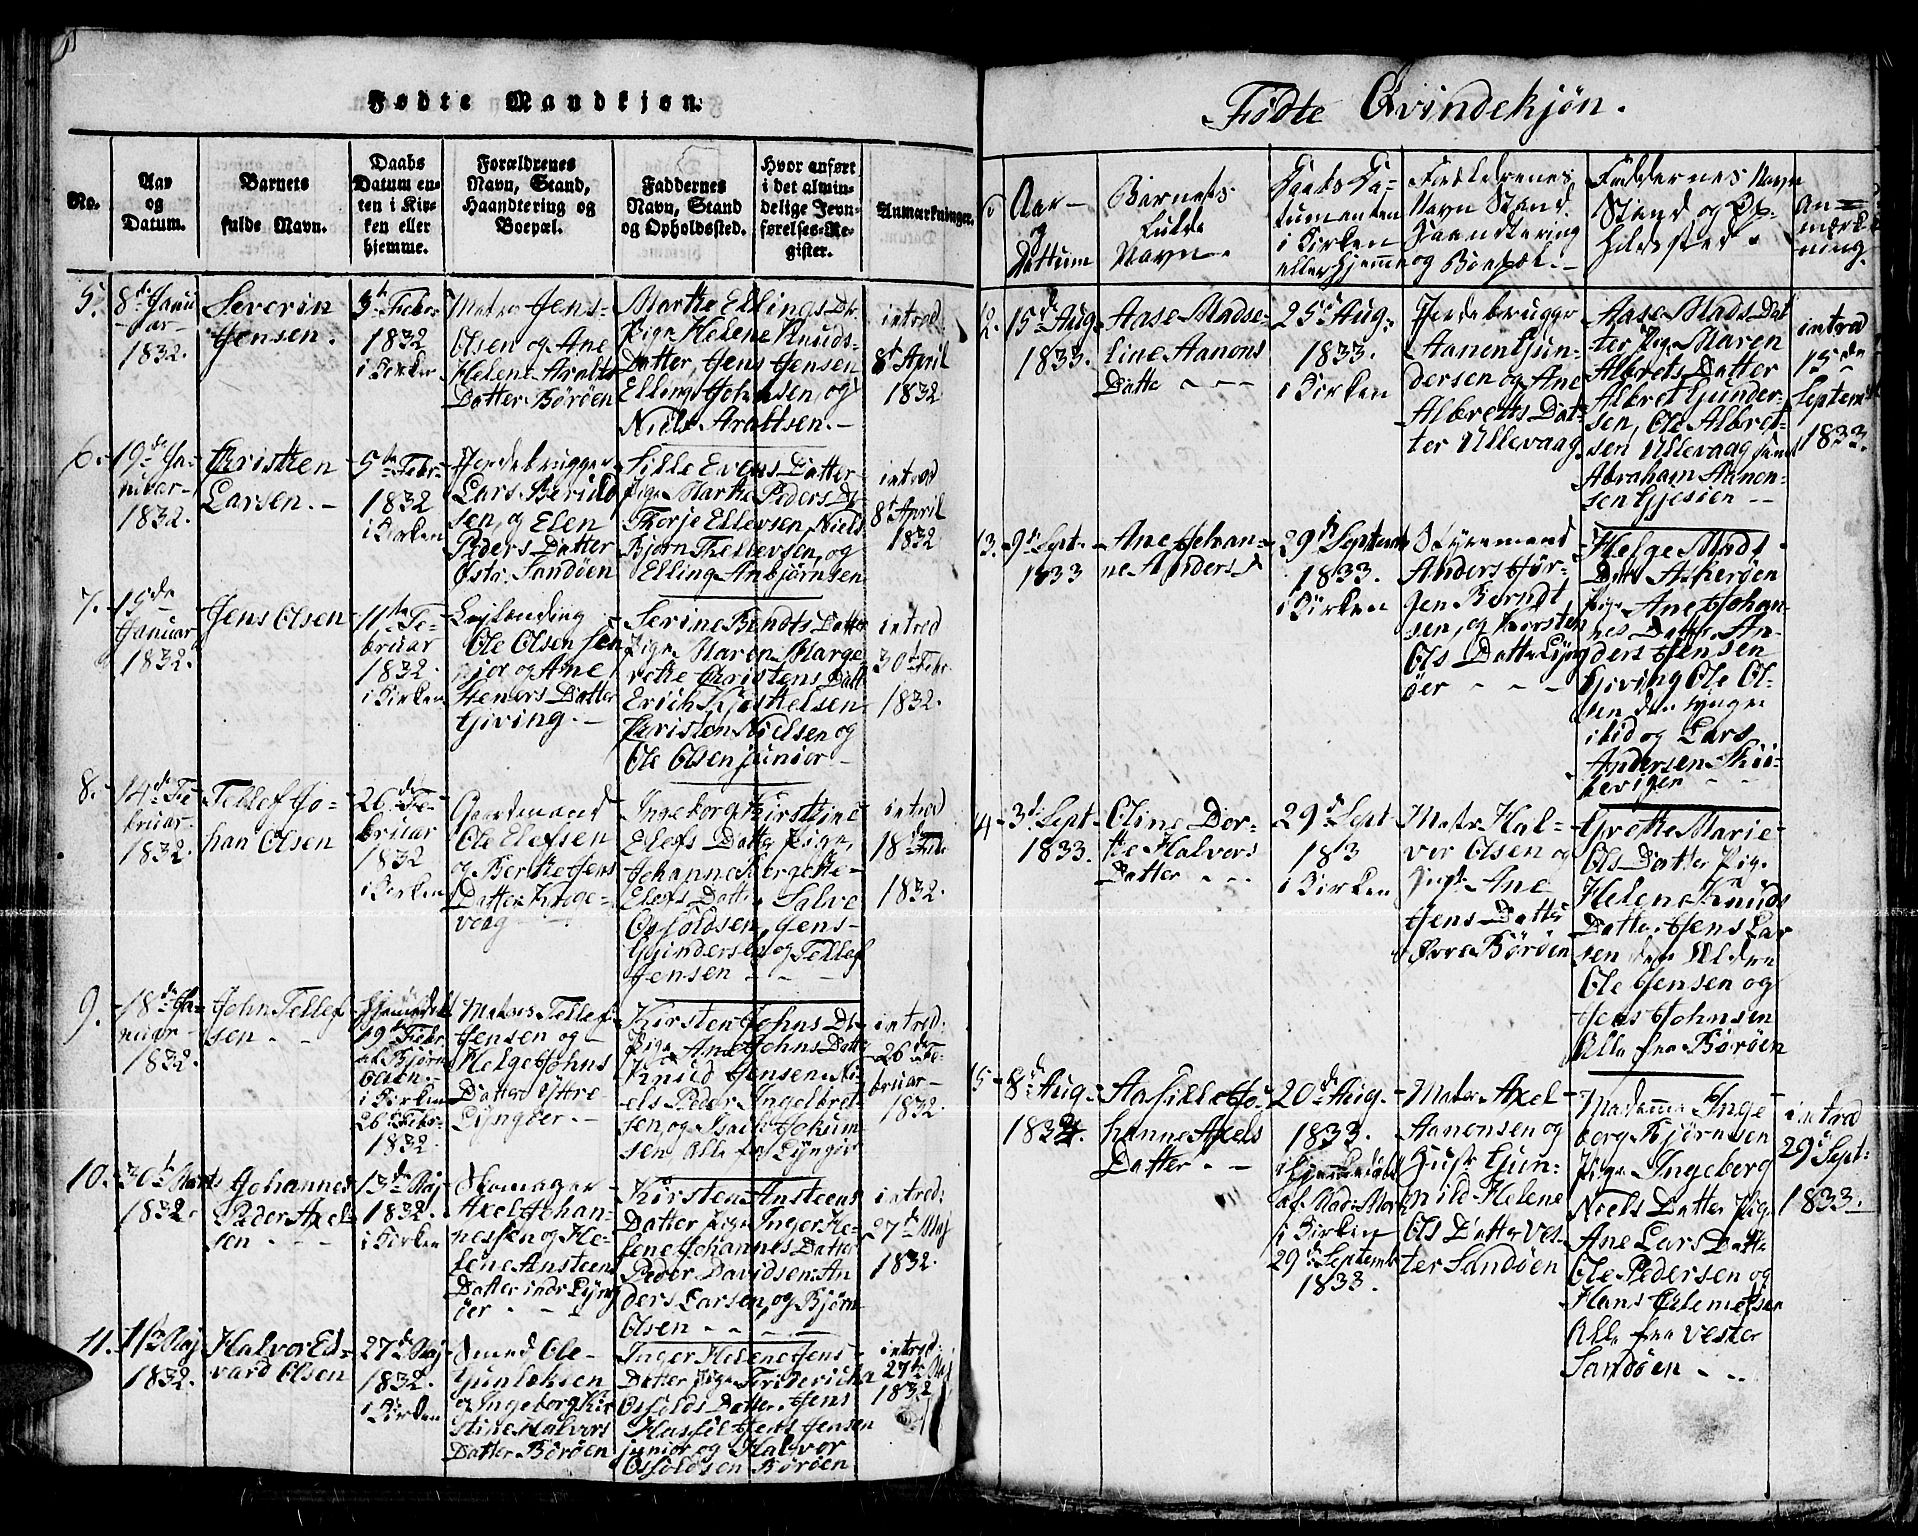 Fødte Mandkjøn.
No.
Aar
og
Datum.
Barnets
fulde Navn.
Daabs
Datum en-
ten i Kir-
ken eller
hjemme.
Forældrenes
Navn, Stand,
Haandtering og
Boepæl.
Faddernes
Navn, Stand
og Opholdssted.
Hvor anført
i det almin-
delige Jevn-
førelses-Re-
gister.
Anmærkninger.
5.
8de Janu
ar
1832.
Severin
Jensen.
5te Febr
1832
i Kirken
Matros Jens
Olsen og Ane
Helene Aralts
Datter Børøen
Marthe Ellings Dtr
Pige Helene Knuds
Datter, Jens Jensen
Elling Johnsen, og
Niels Araltsen.
introd
8de April
1832
6.
19de Ja-
nuar
1832.
Christen
Larsen.
5te Febr
1832
i Kirken
Jordebrugger
Lars Beruld
sen, og Elen
Peders Datter
Østr. Sandøen
Sille Evens Datter
Pige Marthe Peders Dr
Thorje Ellevsen, Niels
Bjørn Thellevsen, og
Elling Anbjørnsen
introd
8de April
1832
7.
15de
Januar
1832.
Jens Olsen
11te Fe-
bruar
1832.
i Kirken
Ole Olsen Sen
jor og Ane
Datter
Giving.
Serine Bendts Datter
Pige Maren Marge
rethe Christens Datt
Erich Kjettelsen
Christen Nielsen og
Ole Olsen junior
introd
30te Febr
1832.
8.
14de Fe
bruar
1832.
Tellef Jo-
han Olsen
26de Fe-
bruar
1832
i Kirken
Gaardmand
Ole Elefsen
og Berthe Jens
Datter Krage-
vaag
Ingeborg Kirstine
Elefs Datter Pige,
Johanne Bergethe
Elefs Datter, Salve
Osfoldsen, Jens
Gundersen og Tellef
Jensen
introd
18de Feb.
1832.
9.
18de Ja-
nuar
1832.
John Tellef
sen
Hjemmedøbt
19de Febr
af Bjørn
Olsen
i Kirken
26de Febr
1832.
Matros Tellef
Jensen og
Helge Johns
Datter Yttre
Lyngøer
Kirsten Johns Dr
Pige Ane Johns Datter
Knud Jensen, Ni-
els Peder Ingelbret
sen, og Isach Jokum-
sen Alle fra Lyngør
introd:
26de Fe-
bruar
1832.
10.
30te Marts
1832.
Johannes
Peder Axel
sen
13de Maj
1832.
i Kirken
Skomager
Axel Johan-
nessen og He-
lene Ansteens
Datter indr Lyng
øer
Kirsten Ansteens
Datter Pige Inger He-
lene Johannes Datter
Peder Davidsen, An
ders Larsen, og Bjørn
Olsen
introd:
27de Maj
1832.
11.
11te Maj
1832.
Halvor Ed-
vard Olsen
27de Maj
1832.
i Kirken
Smed Ole
Gunlaksen
og Ingeborg Kir
stine Halvors
Datter Børøen
Inger Helene Jens
Datter pige Friderieka
Osfolds Datter, Jens
Hassel Jens Jensen
junior, og Halvor
Osfoldsen Børøen
introd:
27de Maj
1832
Fødte Qvindekjøn.
Aar
og
Dattum
Barnets
fulde
Navn.
Daabs Da-
tum enten
i Kirken
eller Hjemme
Foreldrenes
Navn Stand
Haandtering
og Boepæl.
Faddernes Navn
Stand og Op-
holdsted.
An-
mærk
ning.
12.
15de Aug.
1833.
Aase Madse-
line Aanons
Datter
25de Aug.
1833.
i Kirken
Jordebrugger
Aanon Gun-
dersen og Ane
Albretts Dat-
ter Ullevaag
Aase Mads Dat
ter Pige Maren
Albrets Datter
Albret Gunder-
sen, Ole Albret-
sen Ullevaag samt
Abraham Aanon-
sen Gjesøen
introd
15de
Septemb
1833.
13.
9de Sept.
1833
Ane Johan-
ne Anders D
29de Septemb
1833.
i Kirken
Styremand
Anders Jør-
gen Berndt
sen, og Thorsten
Ols Datter Lyng
øer
Helge Mads
Datter Askerøen
Pige Ane Johan-
nes Datter, An-
ders Jensen
Giving Ole Ol-
sen den yngre
ibid og Lars
Andersen
14.
3de Sept
1833.
Oline Dor-
the Halvors
Datter
29de Sept
183
i Kirken
Matr. Hal-
vor Olsen og
Ane
Jens Datter
Øvre Børøen
Grethe Marie
Ols Datter Pige
Helene Knuds
Datter, Jens Lar
sen den Ældre
Ole Jensen og
Jens Johnsen
Alle fra Børøen
15.
8de Aug.
1833.
Aasille Jo-
hanne Axels
Datter
20de Aug.
1833.
i Kirken
29de Septembr
1833.
Matr Axel
Aanonsen og
Hustr. Gun-
nild Helene
Ols Datter Ves-
ter Sandøen
Madame Inge
borg Bjørnsen
Pige Ingeborg
Niels Datter Pige
Ane Lars Datter
Ole Pedersen og
Hans Clemetsen
Alle fra Vester
Sandøen
introd
29de Sept.
1833.